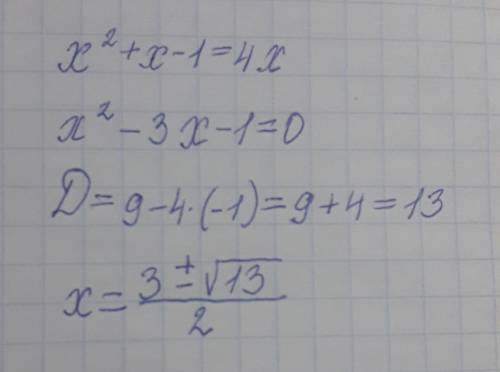 x² + x - 1 = 4x
x² - 3x - 1 = 0
D = 9 - 4·(-1) = 9 + 4 = 13
x = (3 ± √13) / 2